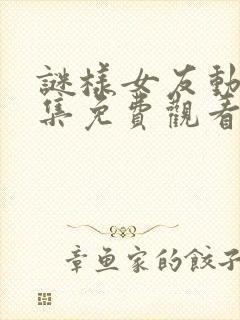 謎樣女友動
集免費觀看
章鱼家的餃子